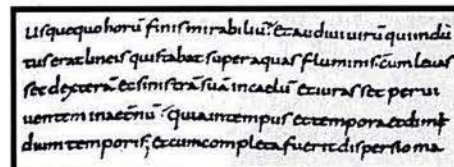 usquequo horū finis mirabiliū? et audivi uirū qui indū
tus erat lineis qui stabat super aquas fluminis: cum levas
set dexterā et sinistrā suā in caelū et iurasset per vi
uentem in aetnū; quia in tempus et tempora et dimid
dum temporis; et cum completa fuerit dispersio ma